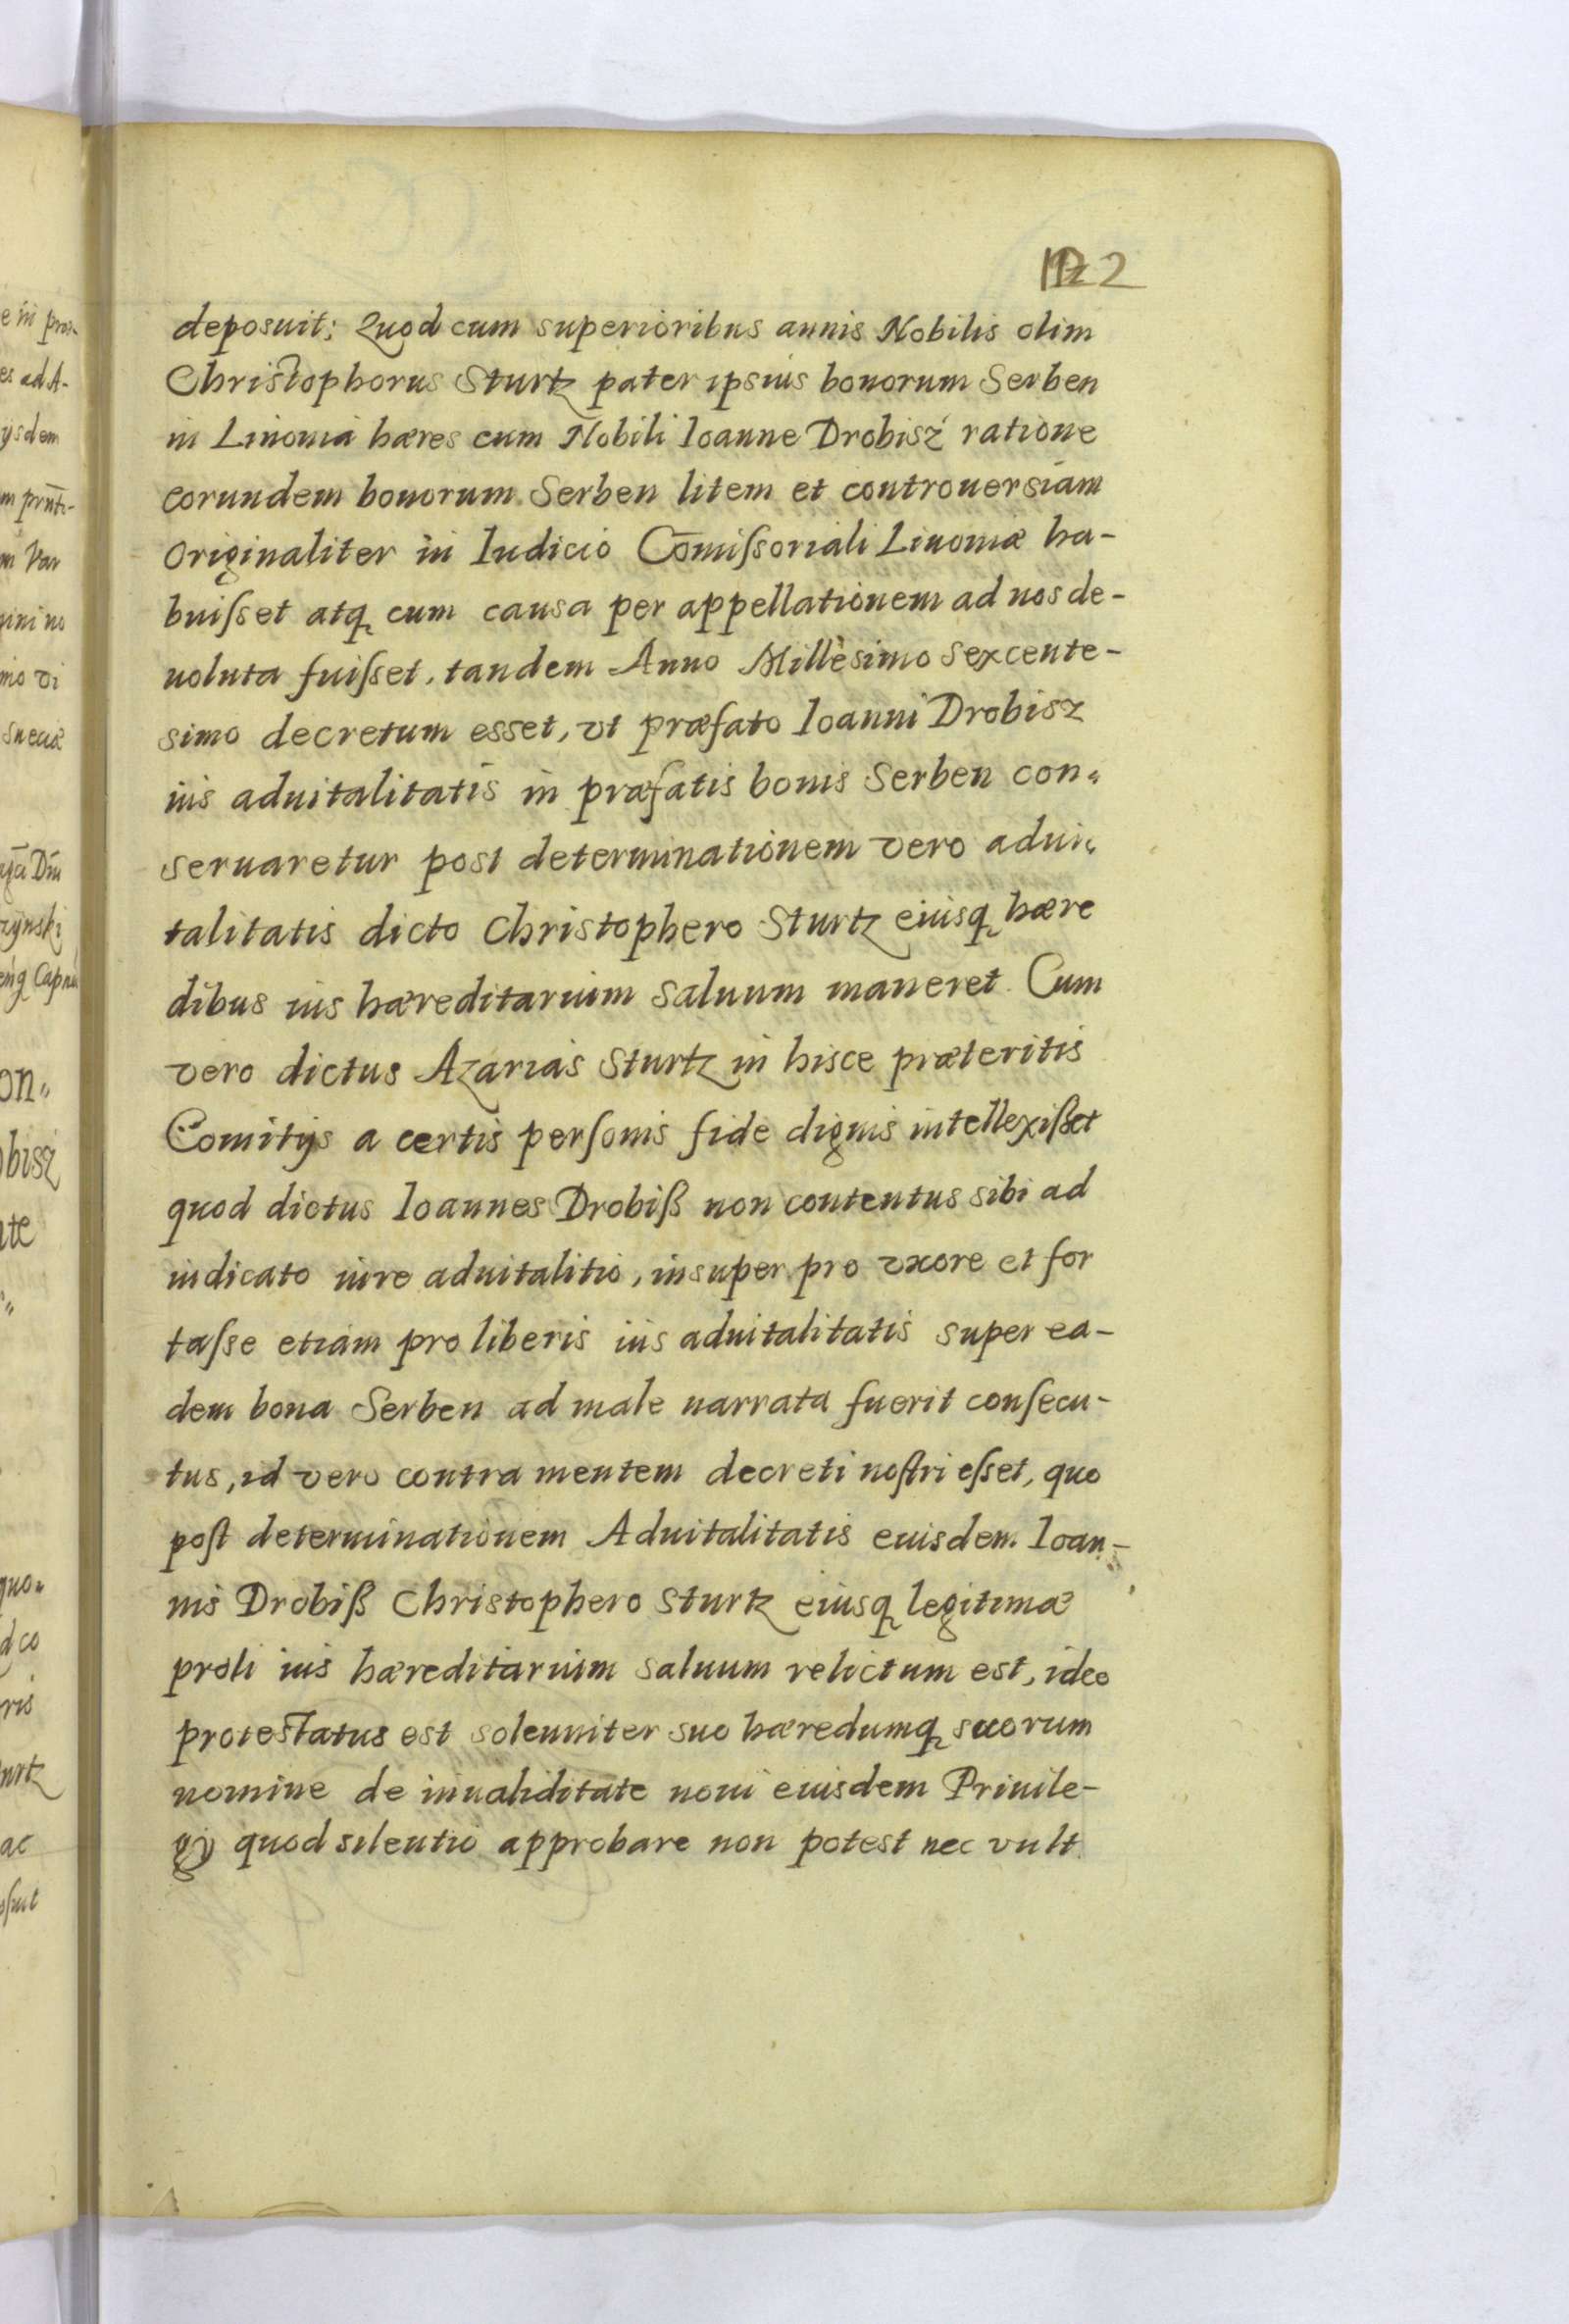 122
deposuit: Quod cum superioribus annis Nobilis olim
Christophorus Sturtz pater ipsius bonorum Serben
in Liuonia hæres cum Nobili Ioanne Drobisz ratione
eorundem bonorum Serben litem et controuersiam
originaliter in Iudicio Com̄iſsoriali Liuoniæ ha-
buiſset atq cum causa per appellationem ad nos de-
uoluta fuiſset, tandem Anno Millesimo Sexcente-
simo decretum esset, vt præfato Ioanni Drobisz
ius aduitalitatis in præfatis bonis Serben con-
seruaretur post determinationem vero adui-
talitatis dicto Christophero Sturtz eiusq hære
dibus ius hæreditarium saluum maneret. Cum
vero dictus Azarias Sturtz in hisce præteritis
Comitijs a certis perſonis fide dignis intellexißet
quod dictus Ioannes Drobiß non contentus sibi ad
iudicato iure aduitalitio, insuper pro vxore et for
taſse etiam pro liberis ius aduitalitatis super ea-
dem bona Serben ad male narrata fuerit conſecu-
tus, id vero contra mentem decreti noſtri eſset, quo
poſt determinationem Aduitalitatis euisdem Ioan-
nis Drobiß Christophero Sturtz eiusq legitimæ
proli ius hæreditarium saluum relictum est, ideo
protestatus est solenniter suo hæredumq suorum
nomine de inualiditate noui euisdem Priuile-
gij quod silentio approbare non potest nec vult.
e in pras-
es ad A-
ysdem